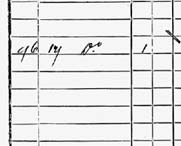 96 17 Do 1